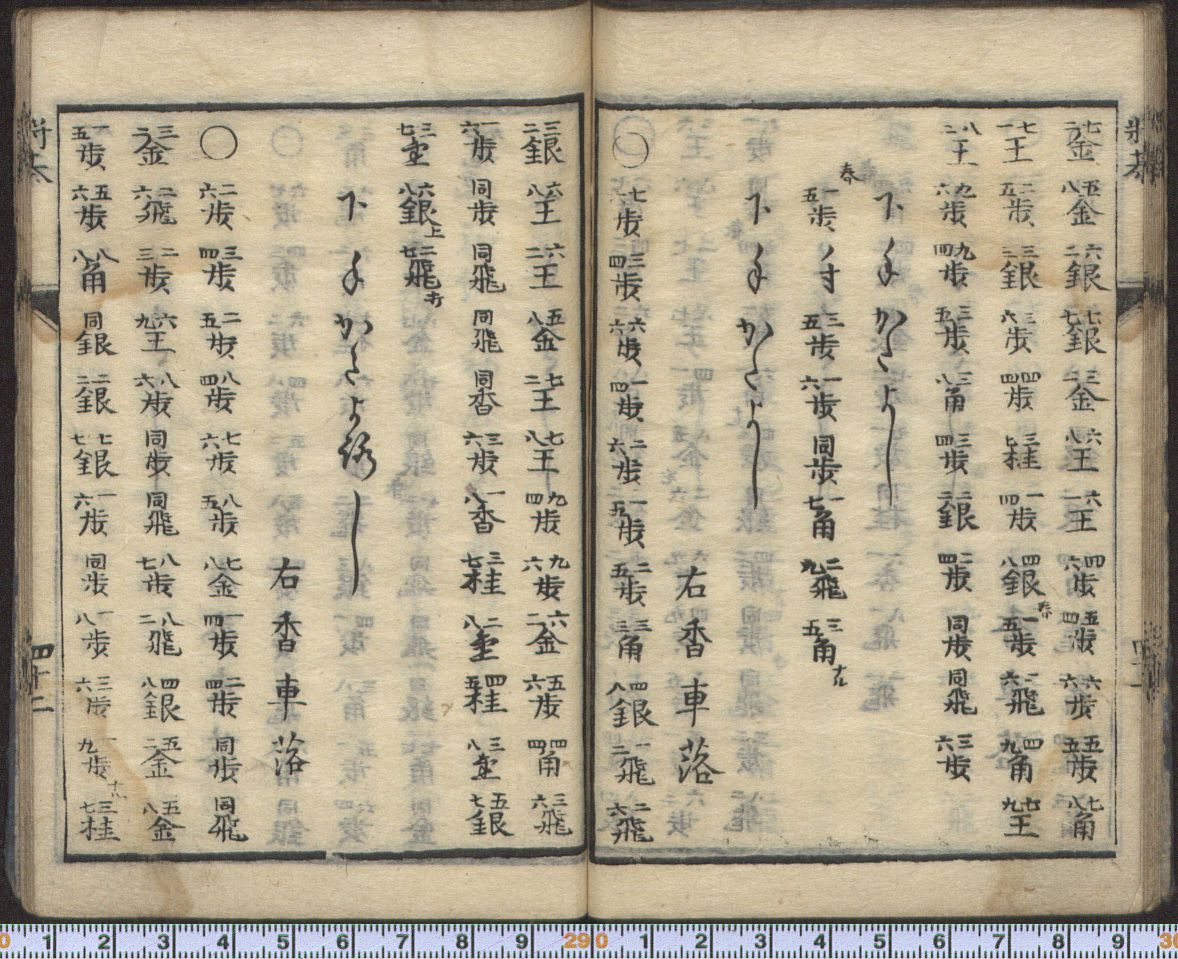 七二金 五八金 六二銀 七七銀 三二金 六八王 六一王 四六歩 五四歩 六六歩 五五歩 七八角
七一王 二五歩 三三銀 三六歩 四四歩 三七桂 一四歩 四八銀 一五歩 二六飛 四九角 七九王
八二王 九六歩 九四歩 三五歩 三八角 三四歩 二二銀 二四歩 同歩 同飛 三六歩
下手かたよし
一五歩 付 三五歩 一六歩 同歩 一七角 二九飛 三五角
下手かたよし
右香車落
○ 七六歩 三四歩 六六歩 一四歩 二六歩 一五歩 二五歩 三三角 四八銀 一二飛 二六飛
三二銀 六八王 六二王 五八金 七二王 七八王 九四歩 九六歩 六二金 五六歩 四四角 三六飛
一六歩 同歩 同飛 同飛 同香 三六歩 一八香 三七桂 二八金 四五桂 三八金 五七銀
三七金 六八銀上 二二飛打
下手かたよろし
右香車落
○ 二六歩 三四歩 二五歩 八四歩 七六歩 八五歩 七八金 一四歩 二四歩 同歩 同飛
三二金 二六飛 二三歩 六九王 八六歩 同歩 同飛 八七歩 八二飛 四八銀 五二金 五八金
一五歩 五六歩 八八角 同銀 二二銀 七七銀 一六歩 同歩 一八歩 三六歩 一九歩 三七桂
四十二